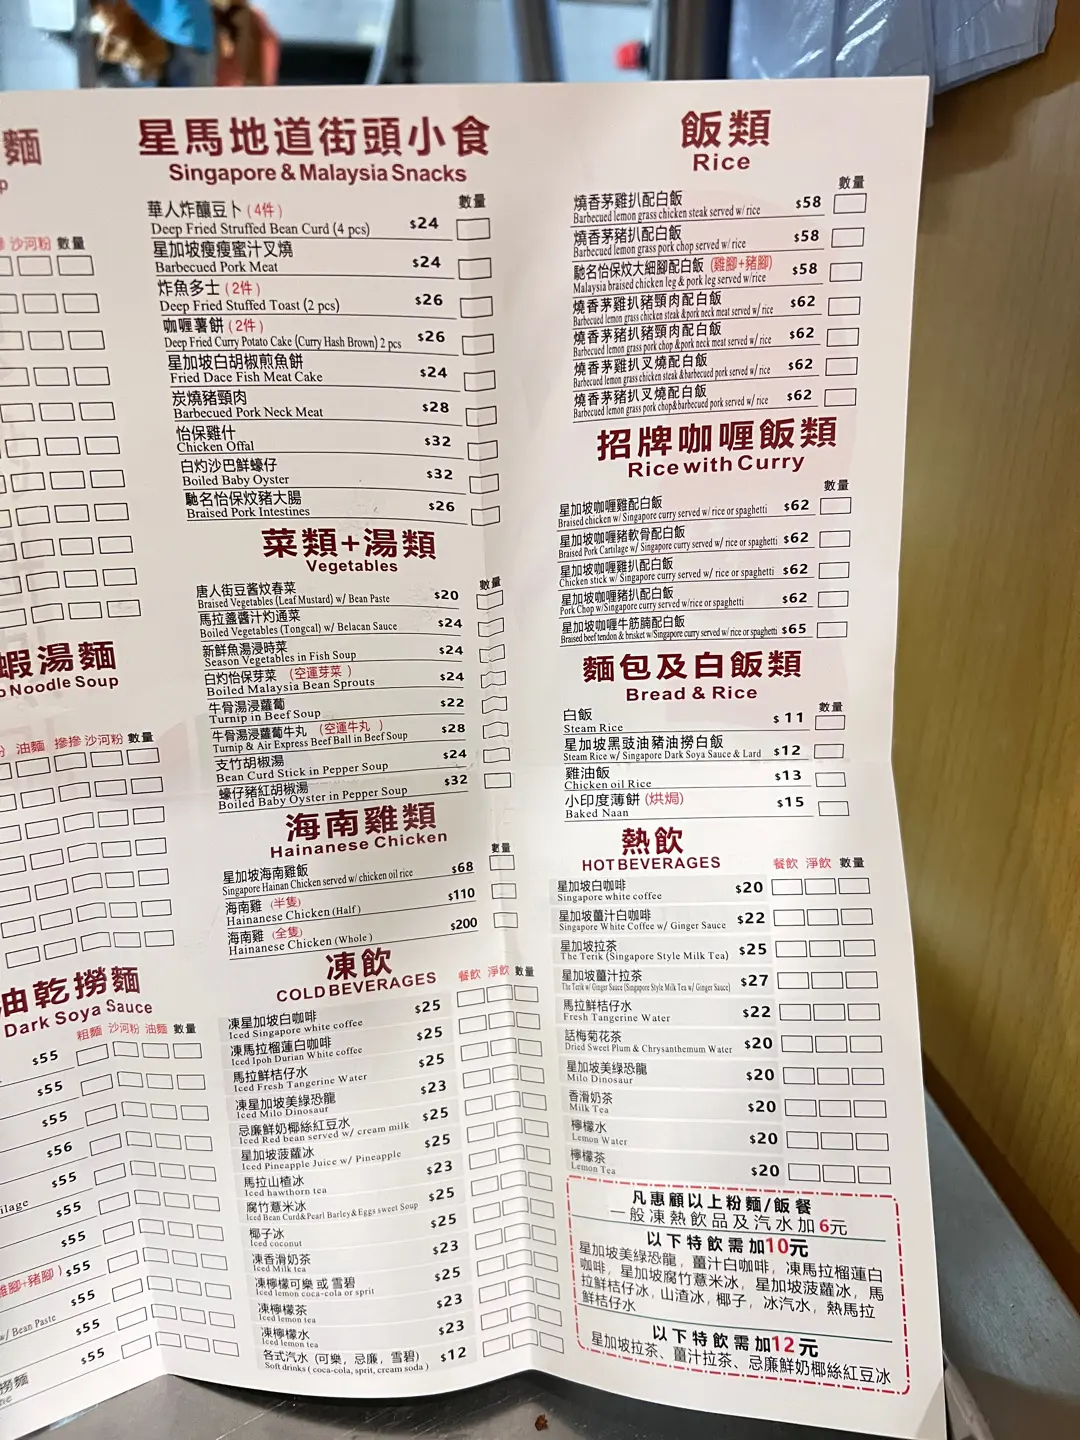 麵
p
沙河粉 數量
蝦湯麵
Noodle Soup
油麵 摻摻 沙河粉 數量
油乾撈麵
Dark Soya Sauce
粗麵 沙河粉 油麵 數量
$55
$55
$55
$56
$55
ilage
$55
$55
雞腳+豬腳) $55
$55
w/ Bean Paste
$55
$55
撈麵
星馬地道街頭小食
Singapore & Malaysia Snacks
數量
華人炸釀豆卜 (4件)
Deep Fried Struffed Bean Curd (4 pcs) $24
星加坡瘦瘦蜜汁叉燒
Barbecued Pork Meat $24
炸魚多士 (2件)
Deep Fried Stuffed Toast (2 pcs) $26
咖喱薯餅 (2件)
Deep Fried Curry Potato Cake (Curry Hash Brown) 2 pcs $26
星加坡白胡椒煎魚餅
Fried Dace Fish Meat Cake $24
炭燒豬頸肉
Barbecued Pork Neck Meat $28
怡保雞什
Chicken Offal $32
白灼沙巴鮮蠔仔
Boiled Baby Oyster $32
馳名怡保炆豬大腸
Braised Pork Intestines $26
菜類+湯類
Vegetables
數量
唐人街豆醬炆春菜
Braised Vegetables (Leaf Mustard) w/ Bean Paste $20
馬拉盞醬汁灼通菜
Boiled Vegetables (Tongcal) w/ Belacan Sauce $24
新鮮魚湯浸時菜
Season Vegetables in Fish Soup $24
白灼怡保芽菜 (空運芽菜)
Boiled Malaysia Bean Sprouts $24
牛骨湯浸蘿蔔
Turnip in Beef Soup $22
牛骨湯浸蘿蔔牛丸 (空運牛丸)
Turnip & Air Express Beef Ball in Beef Soup $28
支竹胡椒湯
Bean Curd Stick in Pepper Soup $24
蠔仔豬紅胡椒湯
Boiled Baby Oyster in Pepper Soup $32
海南雞類
Hainanese Chicken
數量
星加坡海南雞飯
Singapore Hainan Chicken served w/ chicken oil rice $68
海南雞 (半隻)
Hainanese Chicken (Half) $110
海南雞 (全隻)
Hainanese Chicken (Whole) $200
凍飲
COLD BEVERAGES
餐飲 淨飲 數量
凍星加坡白咖啡
Iced Singapore white coffee $25
凍馬拉榴蓮白咖啡
Iced Ipoh Durian White coffee $25
馬拉鮮桔仔水
Iced Fresh Tangerine Water $25
凍星加坡美綠恐龍
Iced Milo Dinosaur $23
忌廉鮮奶椰絲紅豆水
Iced Red bean served w/ cream milk $25
星加坡菠蘿冰
Iced Pineapple Juice w/ Pineapple $25
馬拉山楂冰
Iced hawthorn tea $23
腐竹薏米冰
Iced Bean Curd&Pearl Barley&Eggs sweet Soup $25
椰子冰
Iced coconut $25
凍香滑奶茶
Iced Milk tea $23
凍檸檬可樂 或 雪碧
Iced lemon coca-cola or sprit $25
凍檸檬茶
Iced lemon tea $23
凍檸檬水
Iced lemon tea $23
各式汽水 (可樂, 忌廉, 雪碧)
Soft drinks (coca-cola, sprit, cream soda) $12
飯類
Rice
數量
燒香茅雞扒配白飯
Barbecued lemon grass chicken steak served w/ rice $58
燒香茅豬扒配白飯
Barbecued lemon grass pork chop served w/ rice $58
馳名怡保炆大細腳配白飯 (雞腳+豬腳)
Malaysia braised chicken leg & pork leg served w/rice $58
燒香茅雞扒豬頸肉配白飯
Barbecued lemon grass chicken steak &pork neck meat served w/ rice $62
燒香茅豬扒豬頸肉配白飯
Barbecued lemon grass pork chop &pork neck meat served w/ rice $62
燒香茅雞扒叉燒配白飯
Barbecued lemon grass chicken steak &barbecued pork served w/ rice $62
燒香茅豬扒叉燒配白飯
Barbecued lemon grass pork chop&barbecued pork served w/ rice $62
招牌咖喱飯類
Rice with Curry
數量
星加坡咖喱雞配白飯
Braised chicken w/ Singapore curry served w/ rice or spaghetti $62
星加坡咖喱豬軟骨配白飯
Braised Pork Cartilage w/ Singapore curry served w/ rice or spaghetti $62
星加坡咖喱雞扒配白飯
Chicken stick w/ Singapore curry served w/ rice or spaghetti $62
星加坡咖喱豬扒配白飯
Pork Chop w/Singapore curry served w/rice or spaghetti $62
星加坡咖喱牛筋腩配白飯
Braised beef tendon & brisket w/Singapore curry served w/ rice or spaghetti $65
麵包及白飯類
Bread & Rice
數量
白飯
Steam Rice $ 11
星加坡黑豉油豬油撈白飯
Steam Rice w/ Singapore Dark Soya Sauce & Lard $12
雞油飯
Chicken oil Rice $13
小印度薄餅 (烘焗)
Baked Naan $15
熱飲
HOT BEVERAGES
餐飲 淨飲 數量
星加坡白咖啡
Singapore white coffee $20
星加坡薑汁白咖啡
Singapore White Coffee w/ Ginger Sauce $22
星加坡拉茶
The Terik (Singapore Style Milk Tea) $25
星加坡薑汁拉茶
The Terik w/ Ginger Sauce (Singapore Style Milk Tea w/ Ginger Sauce) $27
馬拉鮮桔仔水
Fresh Tangerine Water $22
話梅菊花茶
Dried Sweet Plum & Chrysanthemum Water $20
星加坡美綠恐龍
Milo Dinosaur $20
香滑奶茶
Milk Tea $20
檸檬水
Lemon Water $20
檸檬茶
Lemon Tea $20
凡惠顧以上粉麵/飯餐
一般凍熱飲品及汽水加6元
以下特飲需加10元
星加坡美綠恐龍, 薑汁白咖啡, 凍馬拉榴蓮白
咖啡, 星加坡腐竹薏米冰, 星加坡菠蘿冰, 馬
拉鮮桔仔冰, 山渣冰, 椰子, 冰汽水, 熱馬拉
鮮桔仔水
以下特飲需加12元
星加坡拉茶、薑汁拉茶、忌廉鮮奶椰絲紅豆冰